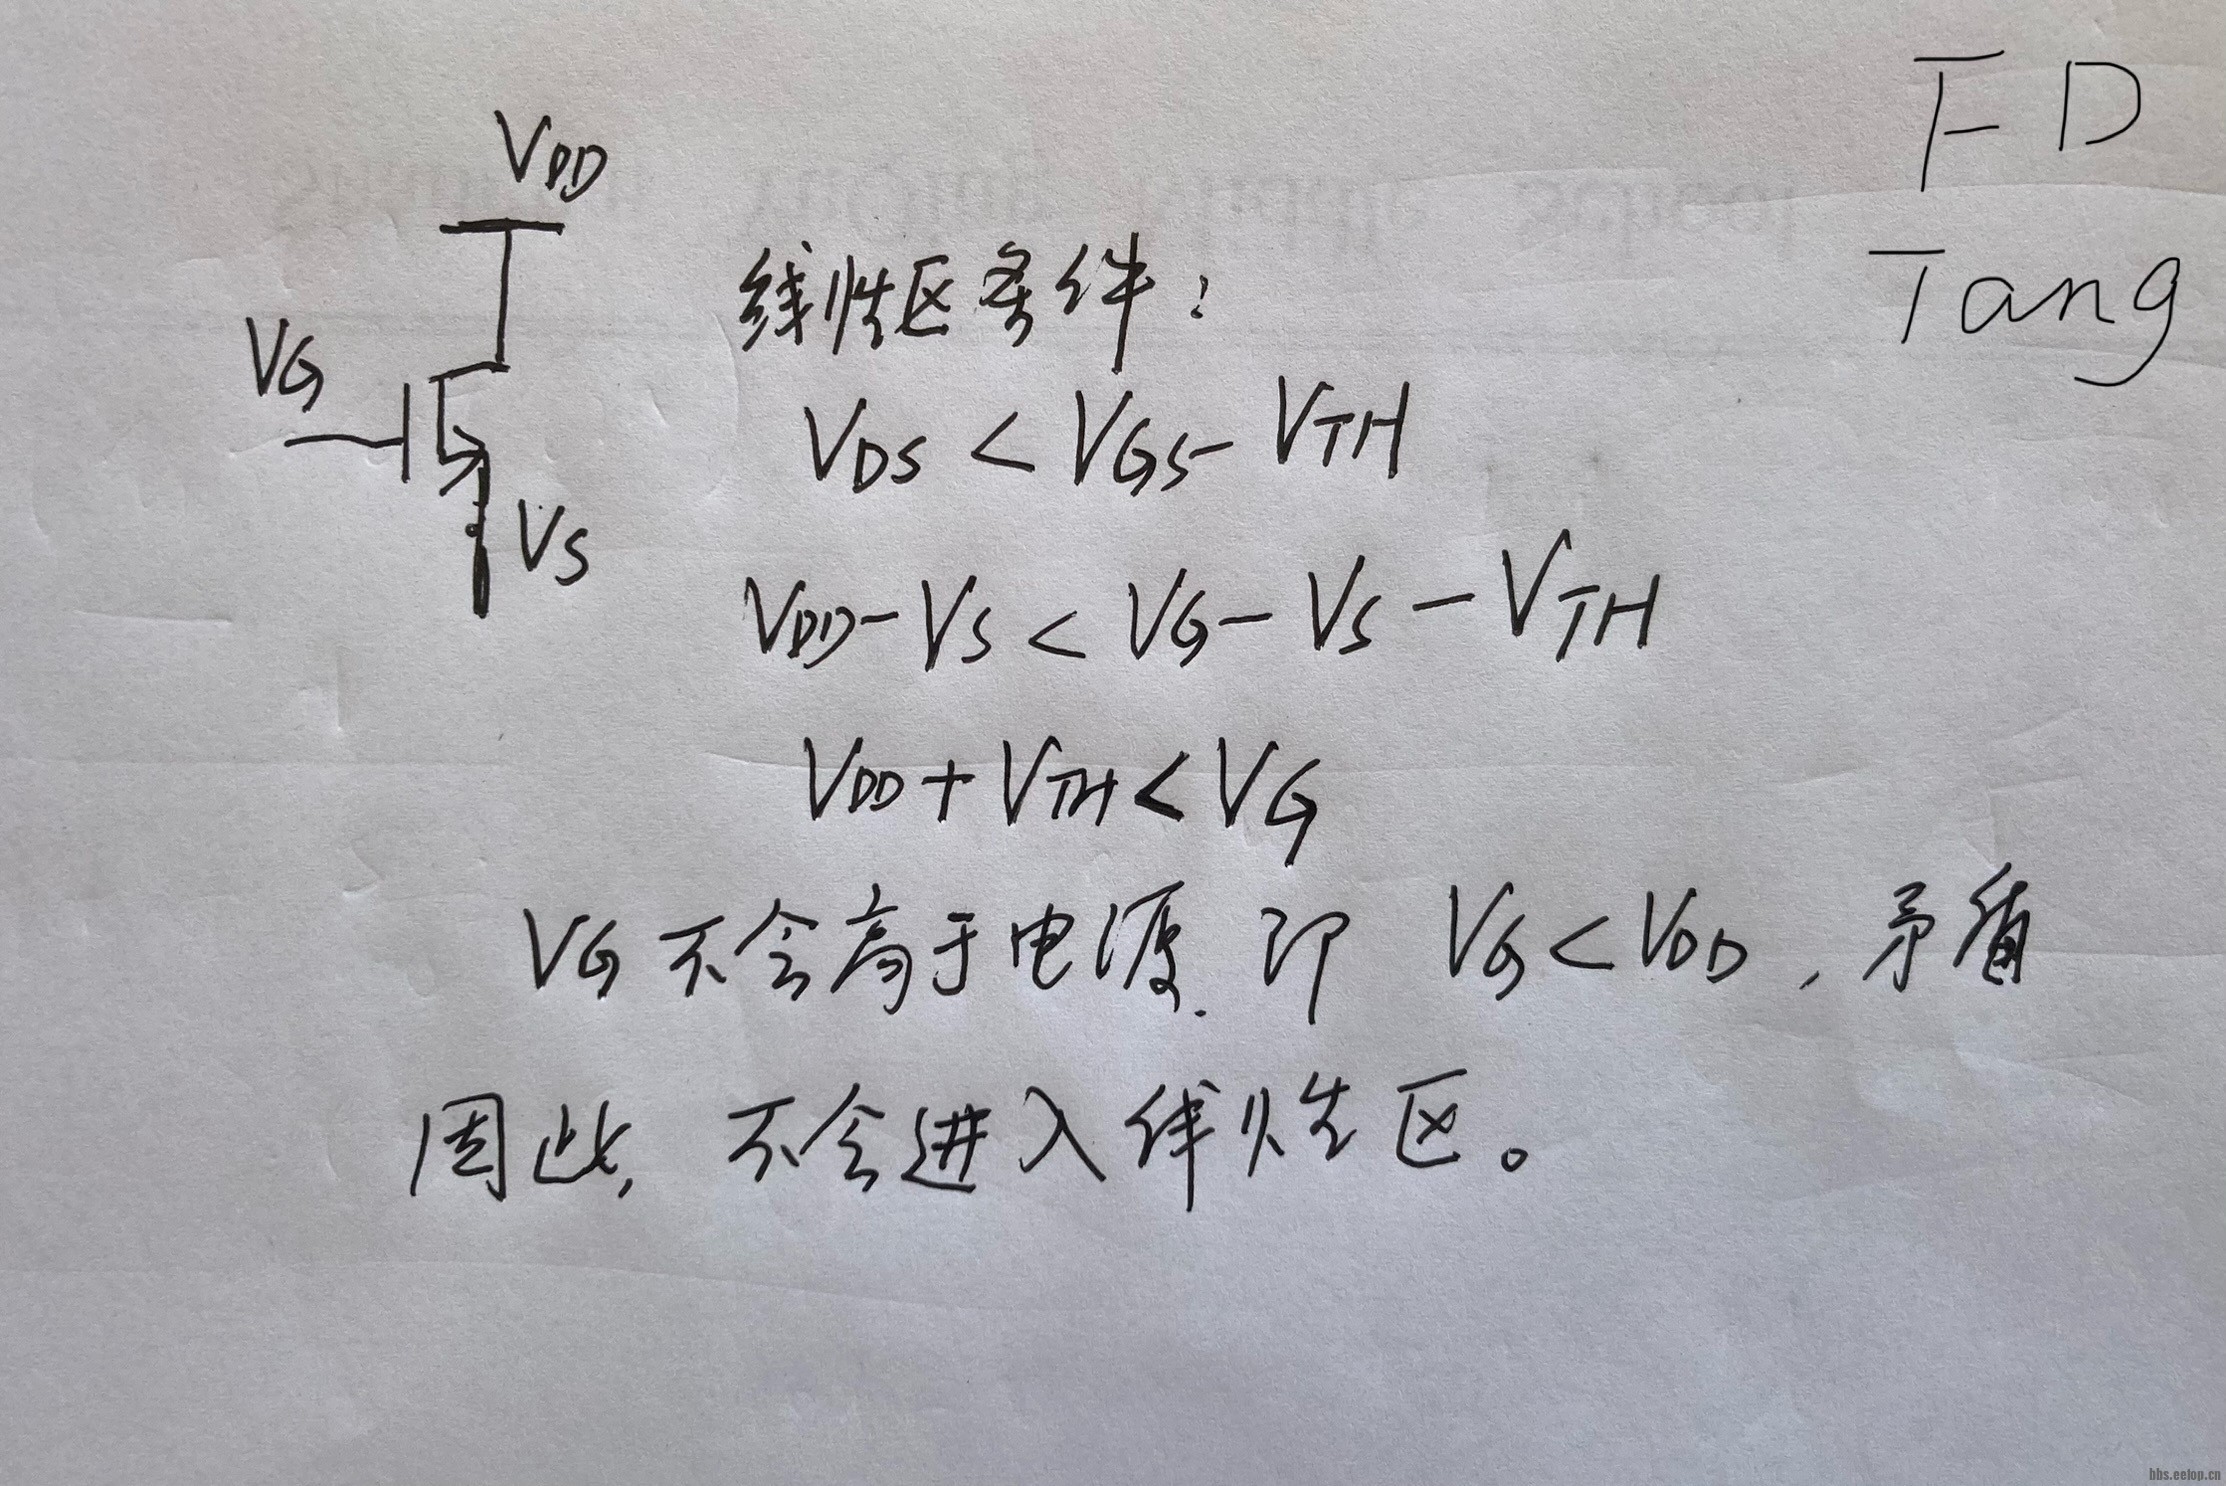 FD
Tang
VDD
VG
VS
线性区条件:
VDS < VGS - VTH
VDD - VS < VG - VS - VTH
VDD + VTH < VG
VG不会高于电源.即 VG < VDD,矛盾
因此,不会进入线性区。
bbs.eetop.cn